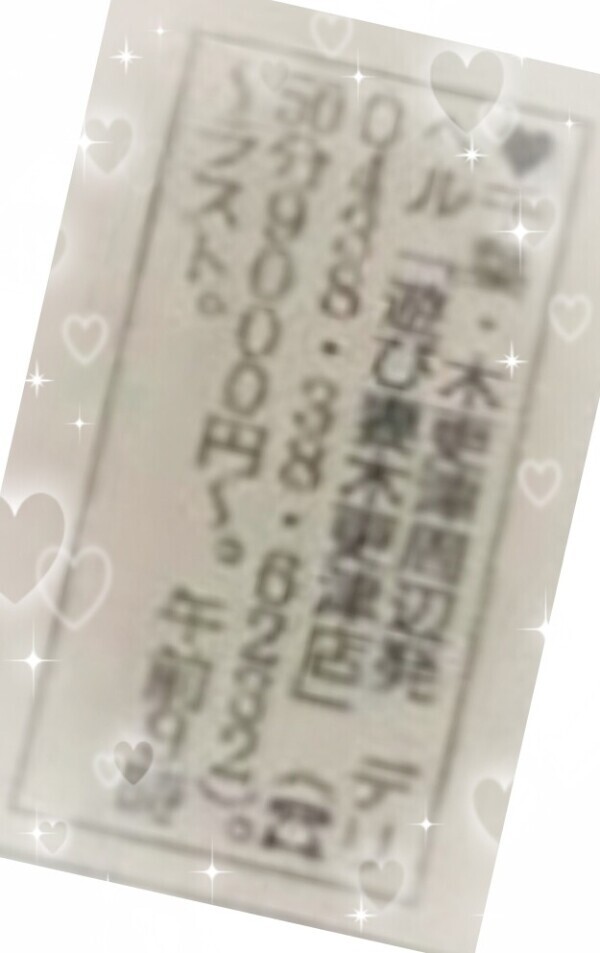 ・木更津周辺発 デリ
ヘル「遊び 木更津店」(電
0438・38・6282)。
50分9000円〜。午前9時
〜ラスト。